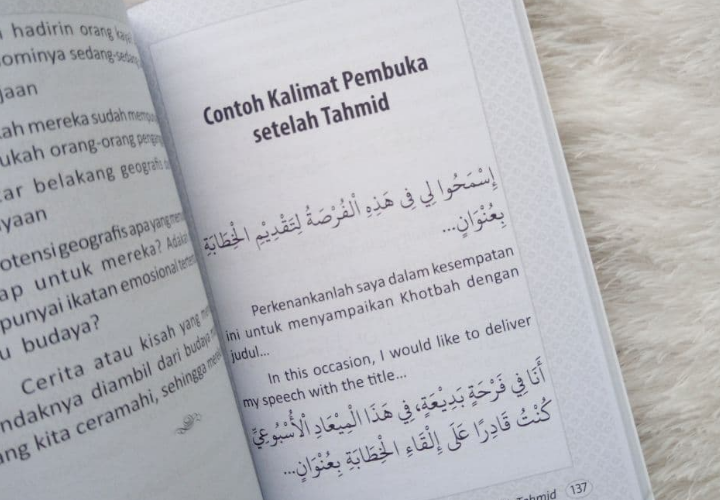 hadirin orang
ominya sedang-sedang
jaan
ah mereka sudah
ukah orang-orang
ar belakang geografis
yaan
otensi geografis apa yang
ap untuk mereka?
punyai ikatan emosional
u budaya?
Cerita atau kisah yang
ndaknya diambil dari budaya
ng kita ceramahi, sehingga
Contoh Kalimat Pembuka
setelah Tahmid
إِسْمَحُوا لِي فِى هَذِهِ الْفُرْصَةُ لِتَقْدِيْمِ الْخِطَابَةِ
بِعُنْوَانٍ...
Perkenankanlah saya dalam kesempatan
ini untuk menyampaikan Khotbah dengan
judul...
In this occasion, I would like to deliver
my speech with the title...
أَنَا فِي فَرْحَةٍ بَدِيْعَةٍ، فِي هَذَا الْمِيْعَادِ الْأُسْبُوْعِيِّ
كُنْتُ قَادِرًا عَلَى إِلْقَاءِ الْخِطَابَةِ بِعُنْوَانٍ...
Tahmid 137